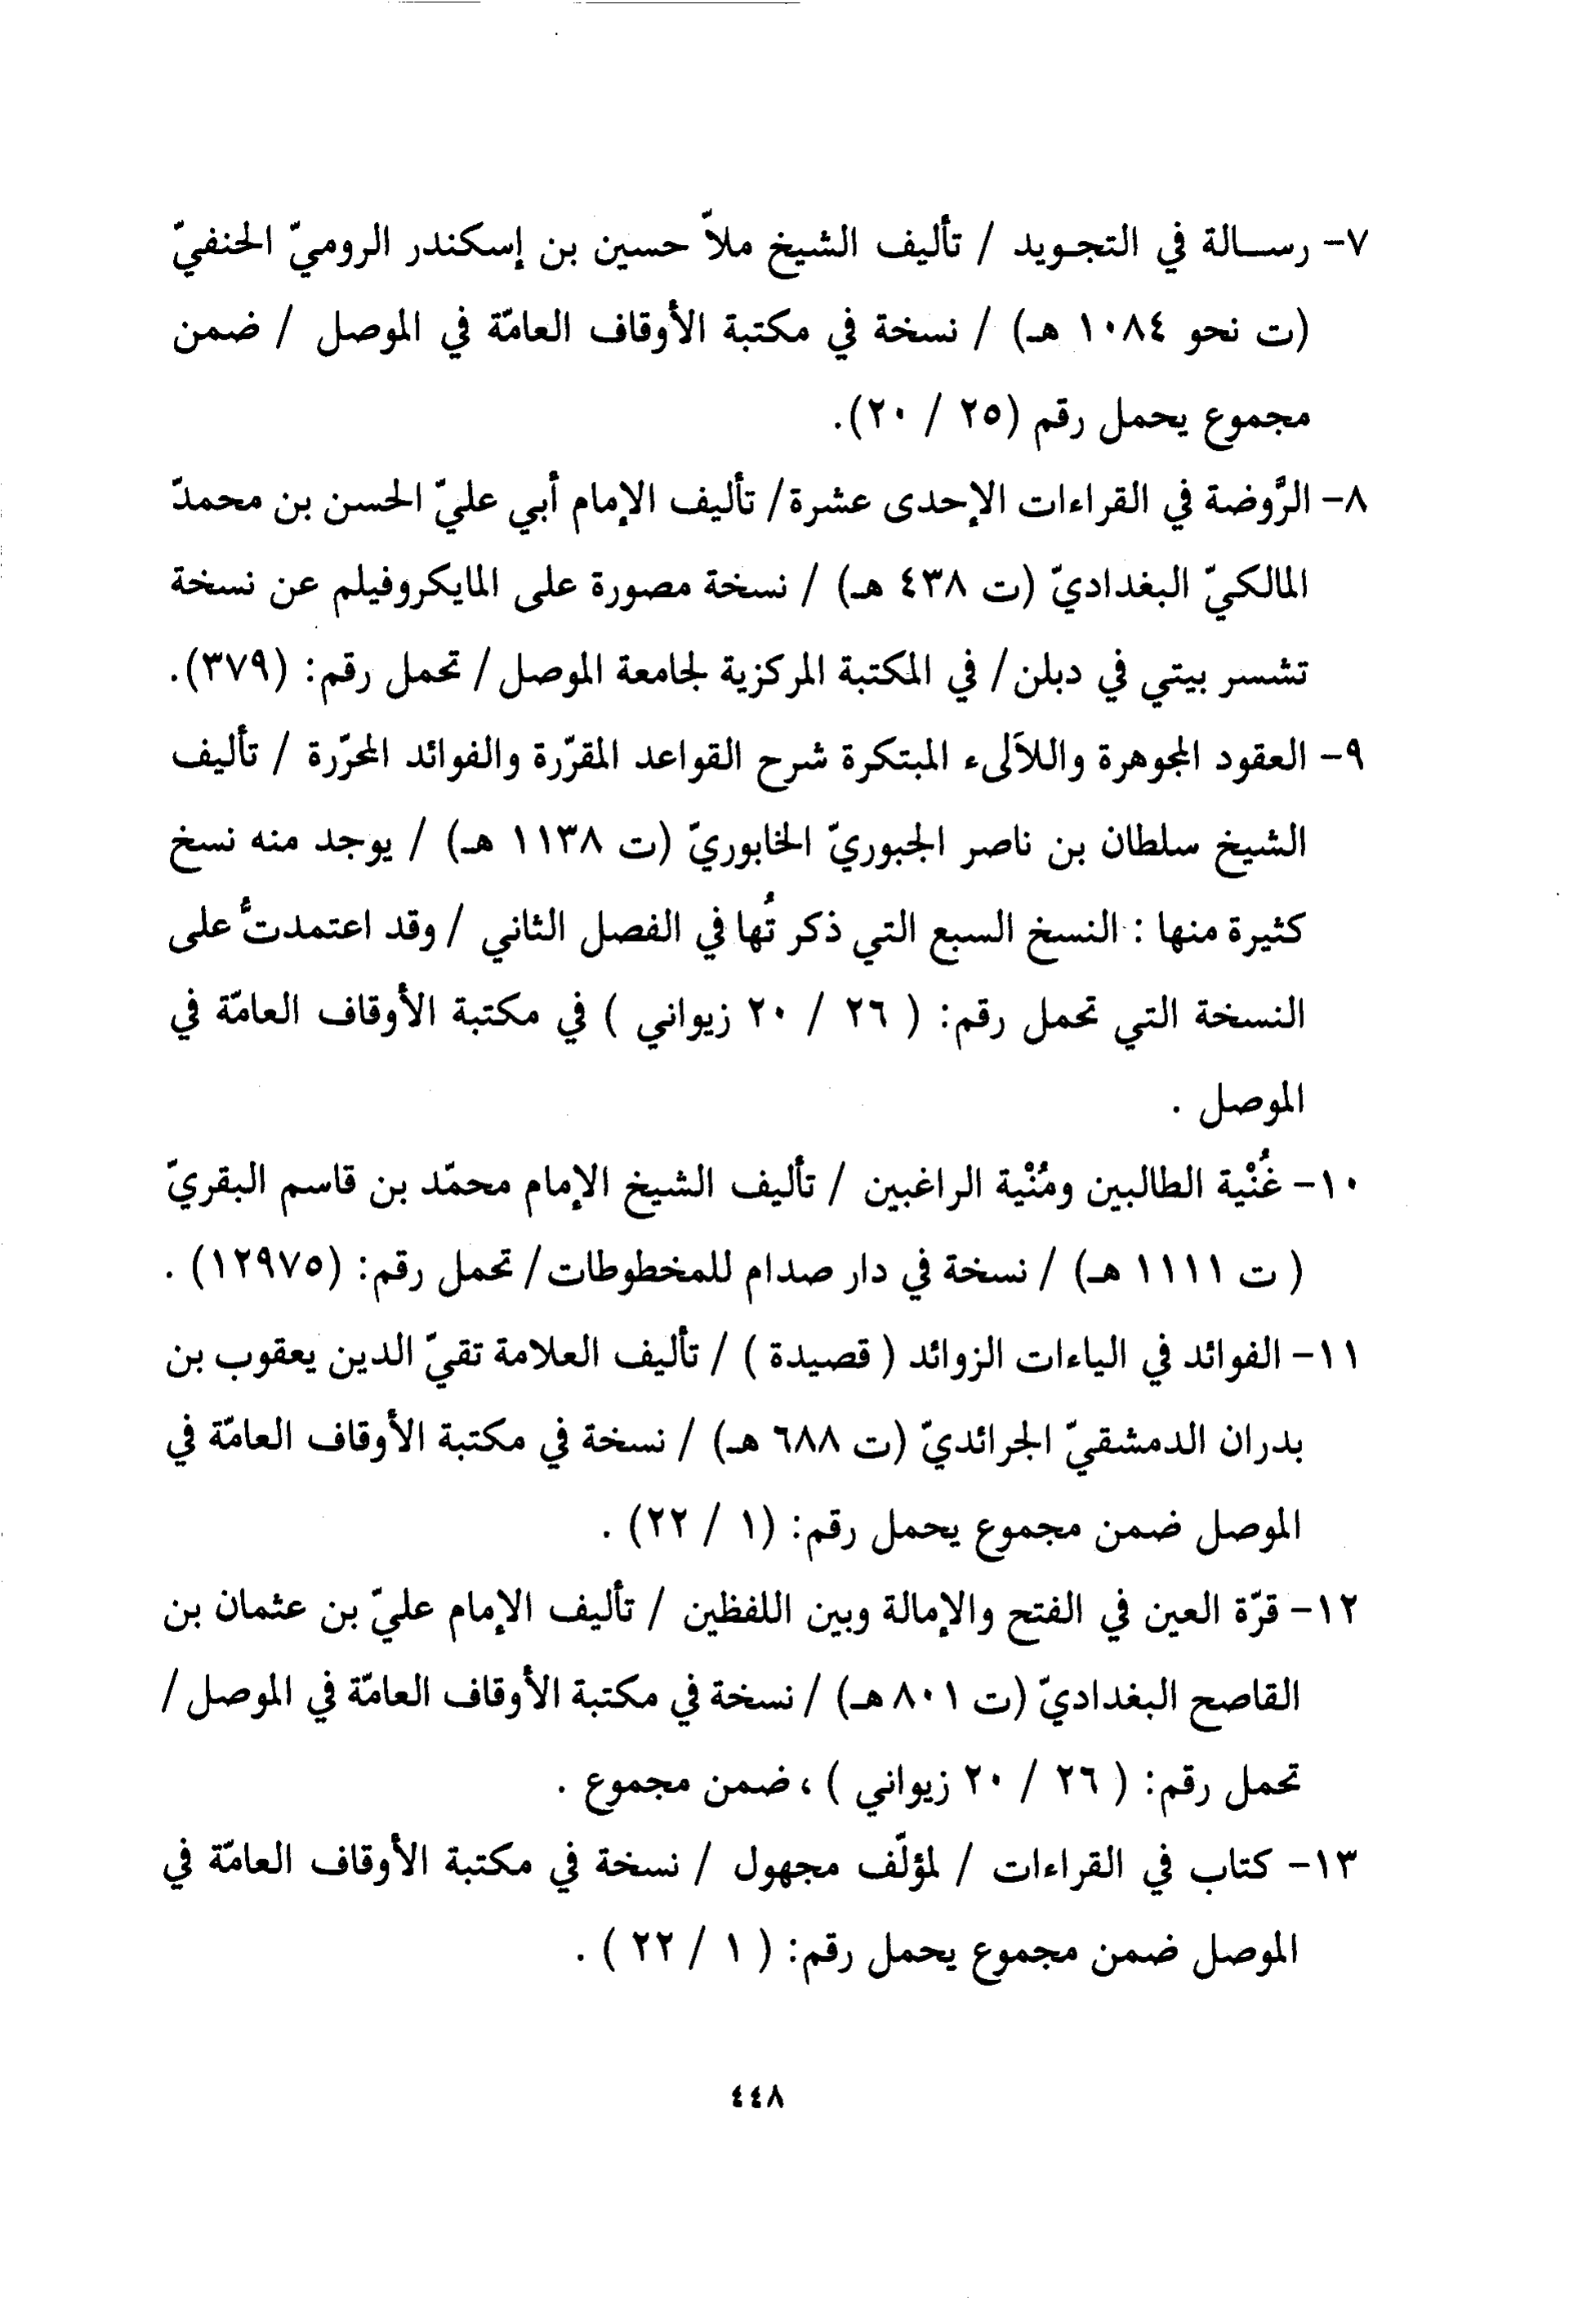 ٧- رسالة في التجويد / تأليف الشيخ ملاّ حسين بن إسكندر الروميّ الحنفيّ
(ت نحو ١٠٨٤ هـ) / نسخة في مكتبة الأوقاف العامّة في الموصل / ضمن
مجموع يحمل رقم (٢٥ / ٢٠).
٨- الرَّوضة في القراءات الإحدى عشرة/ تأليف الإمام أبي عليّ الحسن بن محمدّ
المالكيّ البغداديّ (ت ٤٣٨ هـ) / نسخة مصورة على المايكروفيلم عن نسخة
تشسر بيتي في دبلن/ في المكتبة المركزية لجامعة الموصل/ تحمل رقم: (٣٧٩).
٩- العقود المجوهرة واللآلىء المبتكرة شرح القواعد المقرّرة والفوائد المحرّرة / تأليف
الشيخ سلطان بن ناصر الجبوريّ الخابوريّ (ت ١١٣٨ هـ) / يوجد منه نسخ
كثيرة منها : النسخ السبع التي ذكر تُها في الفصل الثاني / وقد اعتمدتُّ على
النسخة التي تحمل رقم: ( ٢٦ / ٢٠ زيواني ) في مكتبة الأوقاف العامّة في
الموصل .
١٠- غُنْية الطالبين ومُنْية الراغبين / تأليف الشيخ الإمام محمّد بن قاسم البقريّ
( ت ١١١١ هـ) / نسخة في دار صدام للمخطوطات/ تحمل رقم: (١٢٩٧٥) .
١١- الفوائد في الياءات الزوائد ( قصيدة ) / تأليف العلامة تقيّ الدين يعقوب بن
بدران الدمشقيّ الجرائديّ (ت ٦٨٨ هـ) / نسخة في مكتبة الأوقاف العامّة في
الموصل ضمن مجموع يحمل رقم: (١ / ٢٢) .
١٢- قرّة العين في الفتح والإمالة وبين اللفظين / تأليف الإمام عليّ بن عثمان بن
القاصح البغداديّ (ت ٨٠١ هـ) / نسخة في مكتبة الأوقاف العامّة في الموصل /
تحمل رقم: ( ٢٦ / ٢٠ زيواني ) ، ضمن مجموع .
١٣- كتاب في القراءات / لمؤلّف مجهول / نسخة في مكتبة الأوقاف العامّة في
الموصل ضمن مجموع يحمل رقم: ( ١ / ٢٢ ) .
٤٤٨